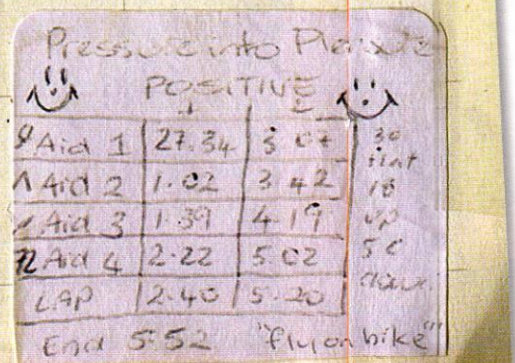 Pressure into Pleasure
POSITIVE
1 2
Aid 1 27.34 3 07 30
flat
Aid 2 1.02 3 42 18
Aid 3 1.39 4.19 up
Aid 4 2.22 5 02 50
down
LAP 2.40 5.20
End 5.52 "fly on bike"